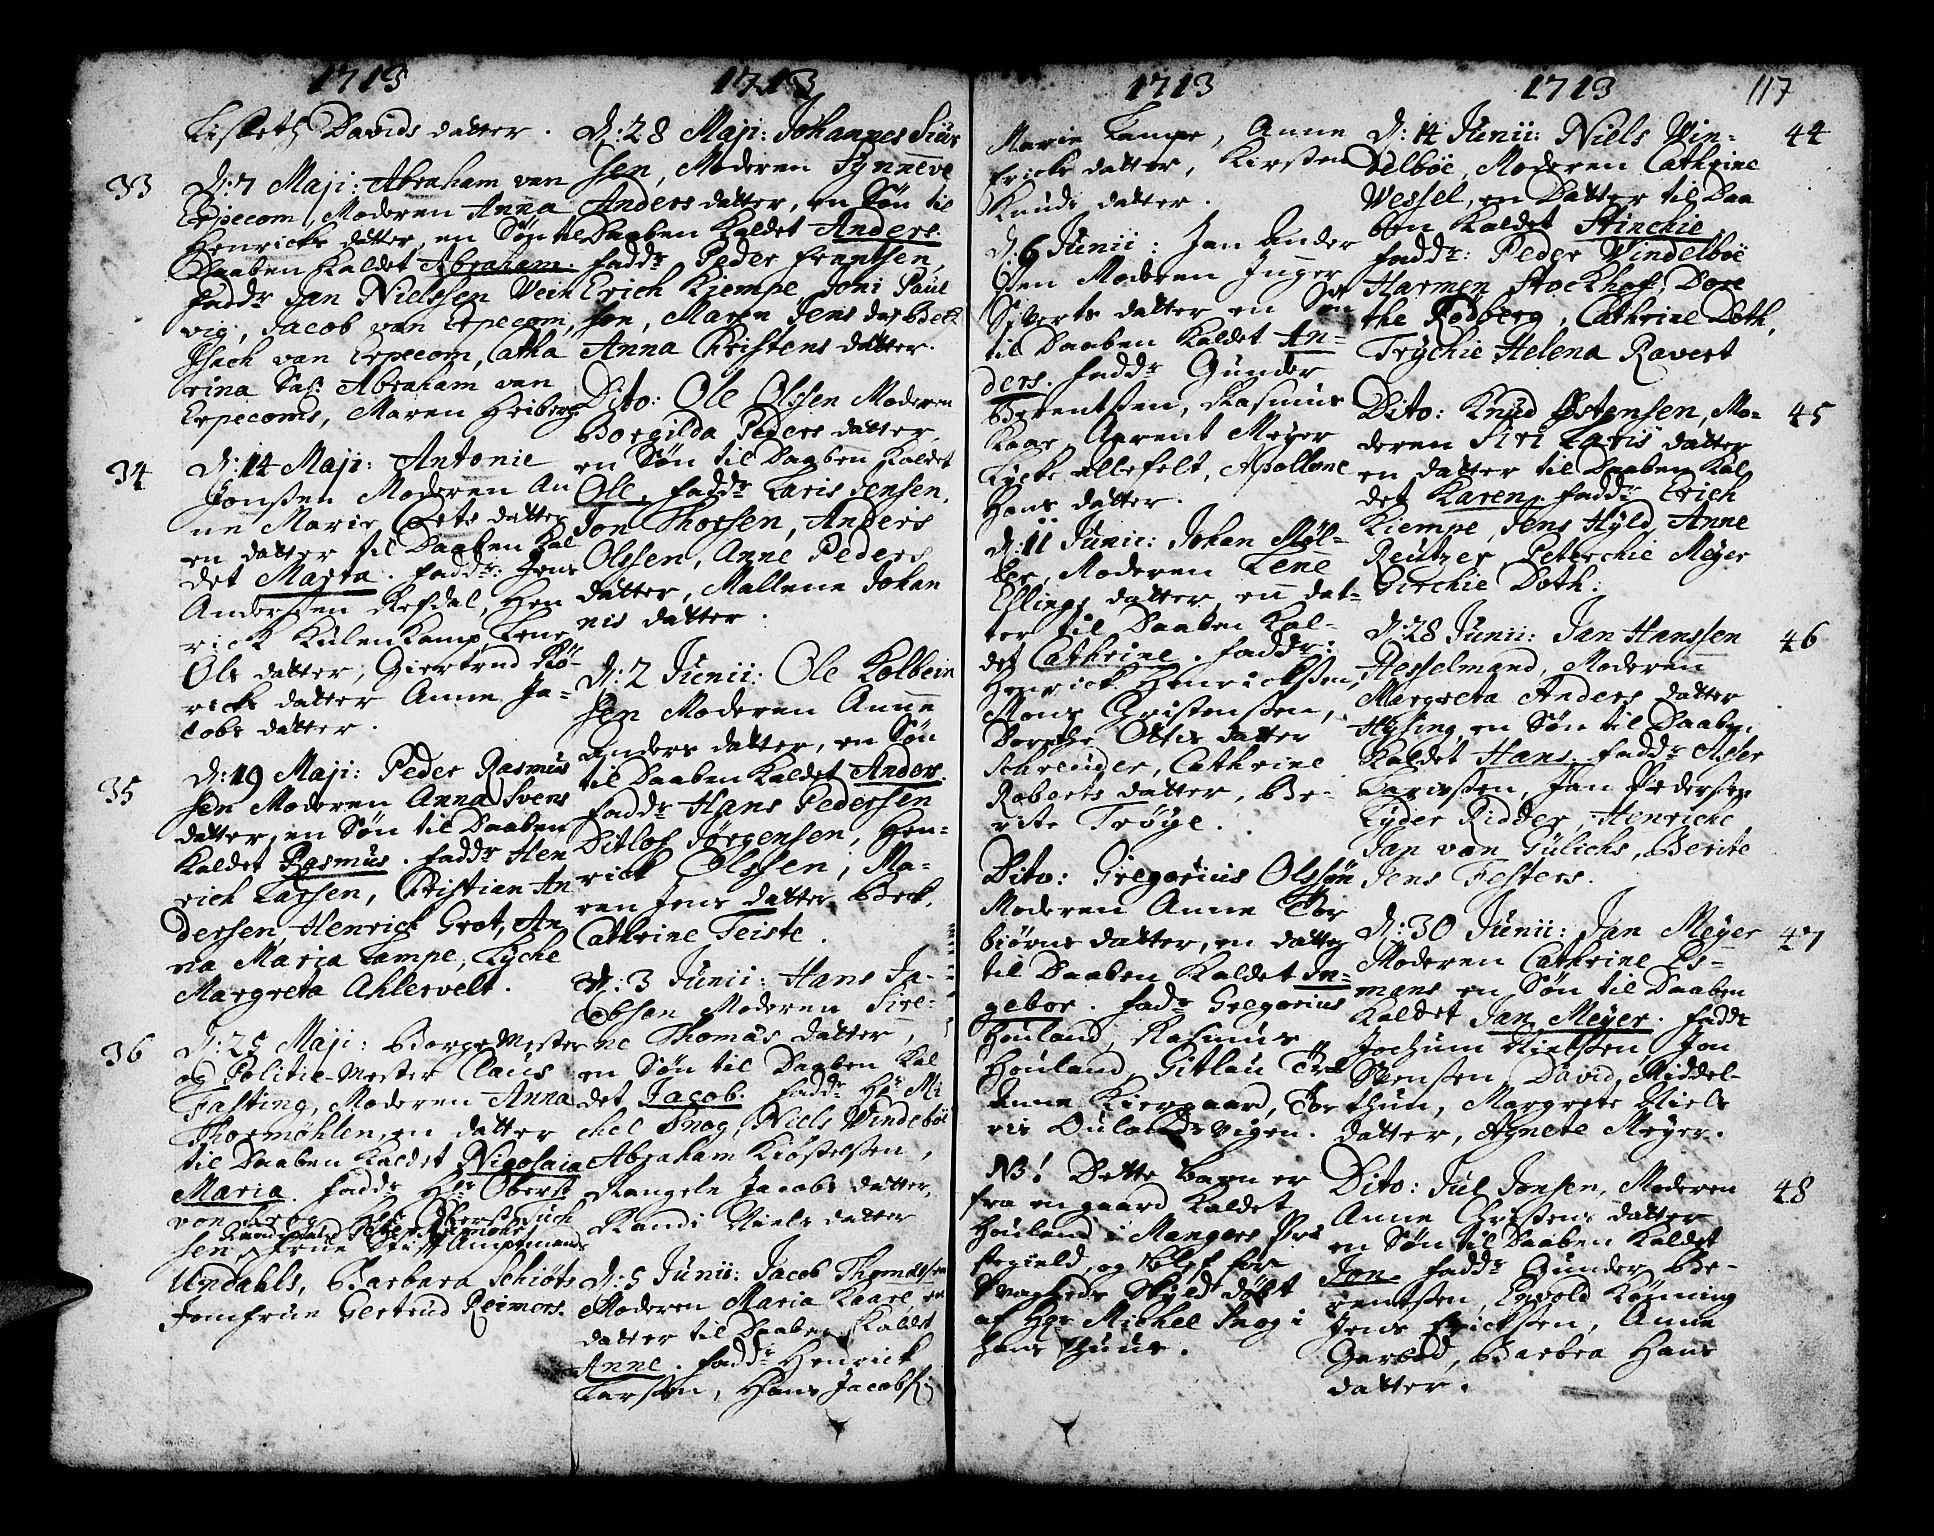 1713
Lisbeth Davids datter.
33
D: 7 Maji: Abraham van
Erpecom, Moderen Anna
Henrichs datter, en Søn til
Daaben Kaldet Abraham.
Faddr Jan Nielssen Wein
vig, Jacob van Erpecom,
Isach van Erpecom, Catha
rina Sal: Abraham van
Erpecoms, Maren Friberg
34
D: 14 Maji: Antonie
Jonssen Moderen An
ne Marie datter
en datter til Daaben Kal
det Marta. Faddr: Jens
Anderssen Refdal, Hen
rick Kulenkamp, Lene
Ols datter, Giertrud
ricks datter Anne Ja-
cobs datter.
35
D: 19 Maji: Peder Rasmus
sen Moderen Anna Svens
datter, en Søn til Daaben
Kaldet Rasmus. Faddr Hen
rich Larsen, Christian An
dersen, Henrick Grot, An
na Maria Lampe, Lyche
Margreta Ahlervelt.
36
D: 25 Maji: Borge Mester
og Politie-Mester Claus
Fasting, Moderen Anna
Thormøhlen, en datter
til Daaben Kaldet Nicolaia
Maria. Faddr Hr Oberst
von Hr Oberst Tuch
sen, Frue Stift Amptmands
Undahls, Barbara Schiøts
Jomfrue Gertrud Reimers.
1713
D: 28 Maji: Johannes Siur
sen, Moderen Synneve
Anders datter, en Søn til
Daaben Kaldet Anders.
Faddr Peder Frantsen,
Erich Kiempe, Joni Paul
sen, Maren Jens dat Beck
Anna Christens datter.
Dito: Ole Olssen Moderen
Borgilda Peders datter,
en Søn til Daaben Kaldet
Ole, Faddr Laris Jensen,
Jon Thorsen, Anders
Olssen, Anne Peders
datter, Mallene Johan
nis datter.
D: 2 Junii: Ole Kolbein
sen Moderen Anne
Anders datter, en Søn
til Daaben Kaldet Anders.
Faddr Hans Pedersen
Ditlof Jørgensen, Hen-
rick Olssen, Ma-
ren Jens datter Beck,
Cathrine Teiste.
D: 3 Junii: Hans Ja-
cobsen Moderen Sire-
ne Thomas datter,
en Søn til Daaben Kal
det Jacob. Faddr Hr Mi
chel Snog, Niels Vindelboe
Abraham Kiøstelssen,
Rangele Jacobs datter,
Randi Niels datter
D: 5 Junii: Jacob Thomassen
Moderen Maria Kaare, en
datter til Daaben Kaldet
Anne. Faddr Henrick
Larssen, Hans Jacobs:
1713
Marie Lampe, Anne
Ericks datter, Kirsten
Knuds datter.
D: 6 Junii: Jan Ander
sen Moderen Inger
Siverts datter en Søn
til Daaben Kaldet An-
ders. Faddr Gunder
Berentssen, Rasmus
Kaar, Aarent Meyer
Lycke Allefelt, Apollone
Hans datter.
D: 11 Junii: Johan Møl-
ler, Moderen Lene
Ellings datter en dat-
ter til Daaben Kal-
det Cathrine. Faddr:
Henrick Henrickssen,
Mons Christenssen,
Dorthe Ottes datter
Schreuder, Cathrine
Roberts datter, Be-
rite Trøye.
Dito: Gregorius Olssøn
Moderen Anne Tor
biørns datter, en datter
til Daaben Kaldet In-
gebor. Fadr Gregorius
Houland, Rasmus
Houland, Gitlau
Anne Kiergaard, Tor
ris Oulandsvigen.
NB! Dette Barn er
fra en gaard Kaldet
Houland i Mangers Præ
stegield, og blef for
Svagheds skyld døbt
af Hr Michel Snog i
hans Huus.
1713
117
44
D: 14 Junii: Niels Vin-
delboe, Moderen Cathrine
Wessel, en Datter til Daa
ben Kaldet Stinchie
Faddr: Peder Vindelboe
Harmen Stockhof, Dore
the Rodberg, Cathrine Doth,
Trychie Helena Ravert
45
Dito: Knud Østensen, Mo-
deren Siri Laris datter
en datter til Daaben Kal
det Karen. Faddr Erich
Kiempe, Jens Hyld, Anne
Reutzer, Peterchie Meyer
Girchie Doth:
46
D: 28 Junii: Jan Hanssen
Hesselmand, Moderen
Margreta Anders datter
Hysing, en Søn til Daaben
Kaldet Hans. Faddr Asser
Larssen, Jan Pederssen
Lyder Ridder, Henriche
Jan van Gülichs, Berite
Jens Festers.
47
D: 30 Junii: Jan Meyer
Moderen Cathrine Es-
mans en Søn til Daaben
Kaldet Jan Meyer. Faddr
Jochum Nielssen, Jon
Svenssen, David Middel-
thun, Margrete Niels
datter, Agnete Meyer.
48
Dito: Jul Jonsen, Moderen
Anne Christens datter
en Søn til Daaben Kaldet
Jon. Faddr Gunder Be-
rentssen, Envold Kønning
Jens Erickssen, Anne
Garbod, Barbra Hans
datter.